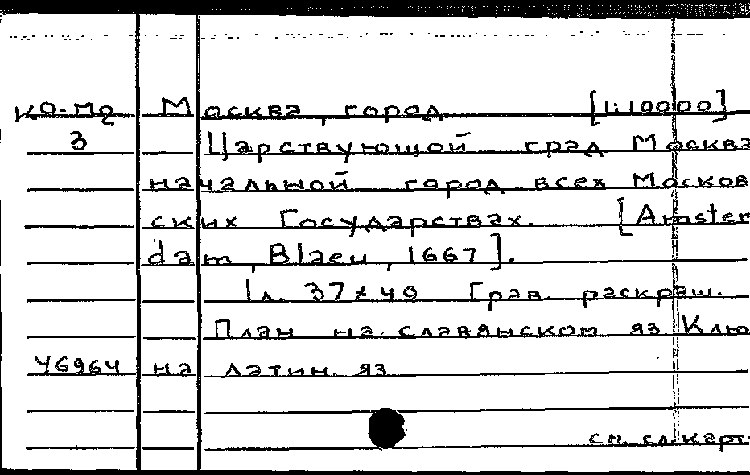 КО-М2 Москва, город [1:10000]
3 Царствующой град Москва
начальной город всех Москов
ских Государствах. [Amster
dam, Blaeu, 1667].
1 л. 37 x 40 Грав. раскраш.
План на славянском яз Клю
46964 на латин. яз
см. сл. карт.